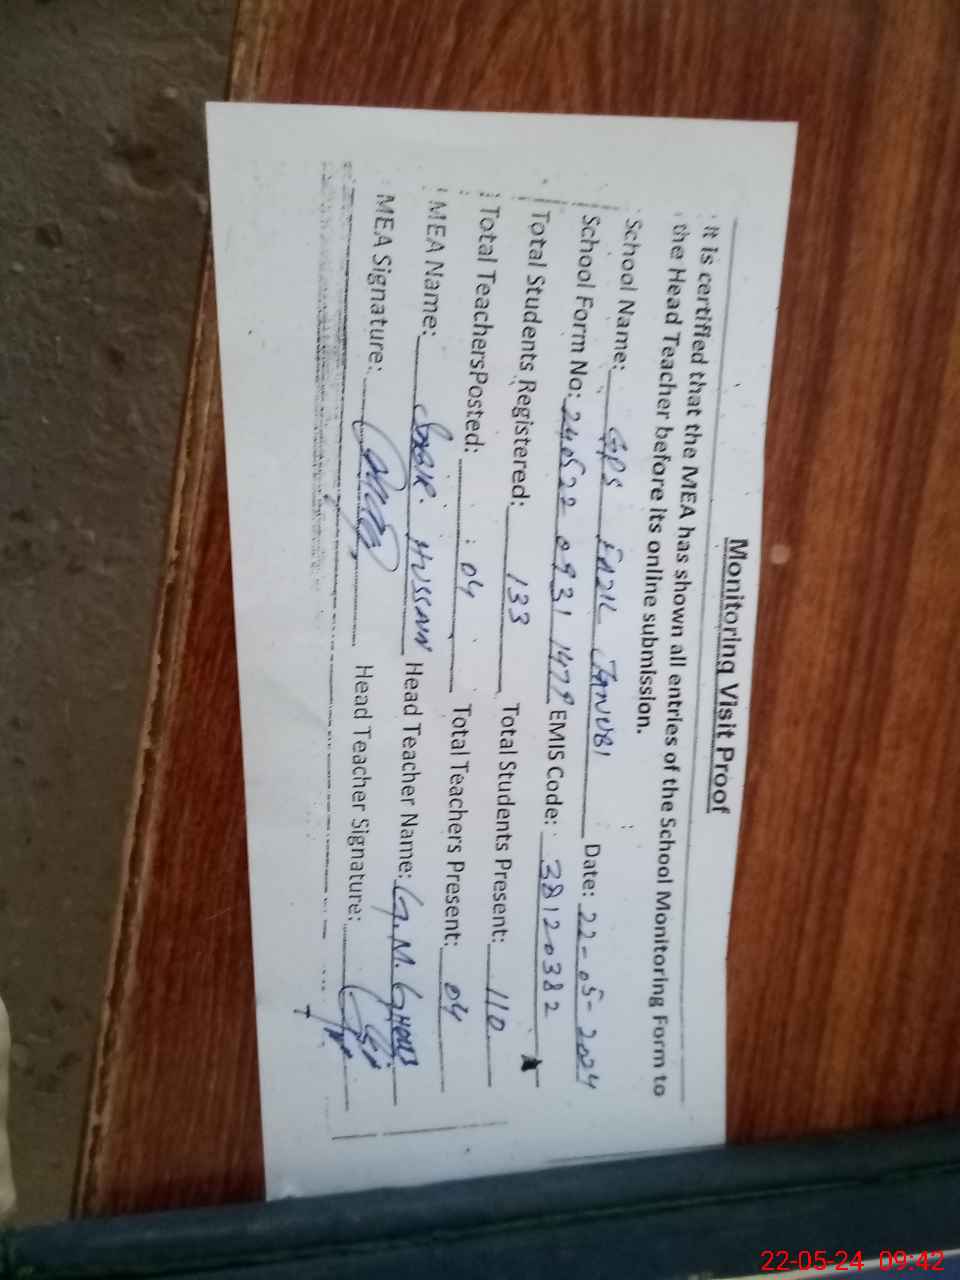 Monitoring Visit Proof
It is certified that the MEA has shown all entries of the School Monitoring Form to
the Head Teacher before its online submission.
School Name: GPS FAZIL JANUBI Date: 22-05-2024
School Form No: 240522 0931 1479 EMIS Code: 38120382
Total Students Registered: 133 Total Students Present: 110
Total TeachersPosted: 04 Total Teachers Present: 04
MEA Name: SABIR HUSSAIN Head Teacher Name: G.M. GHOUS
MEA Signature: Head Teacher Signature:
22-05-24 09:42